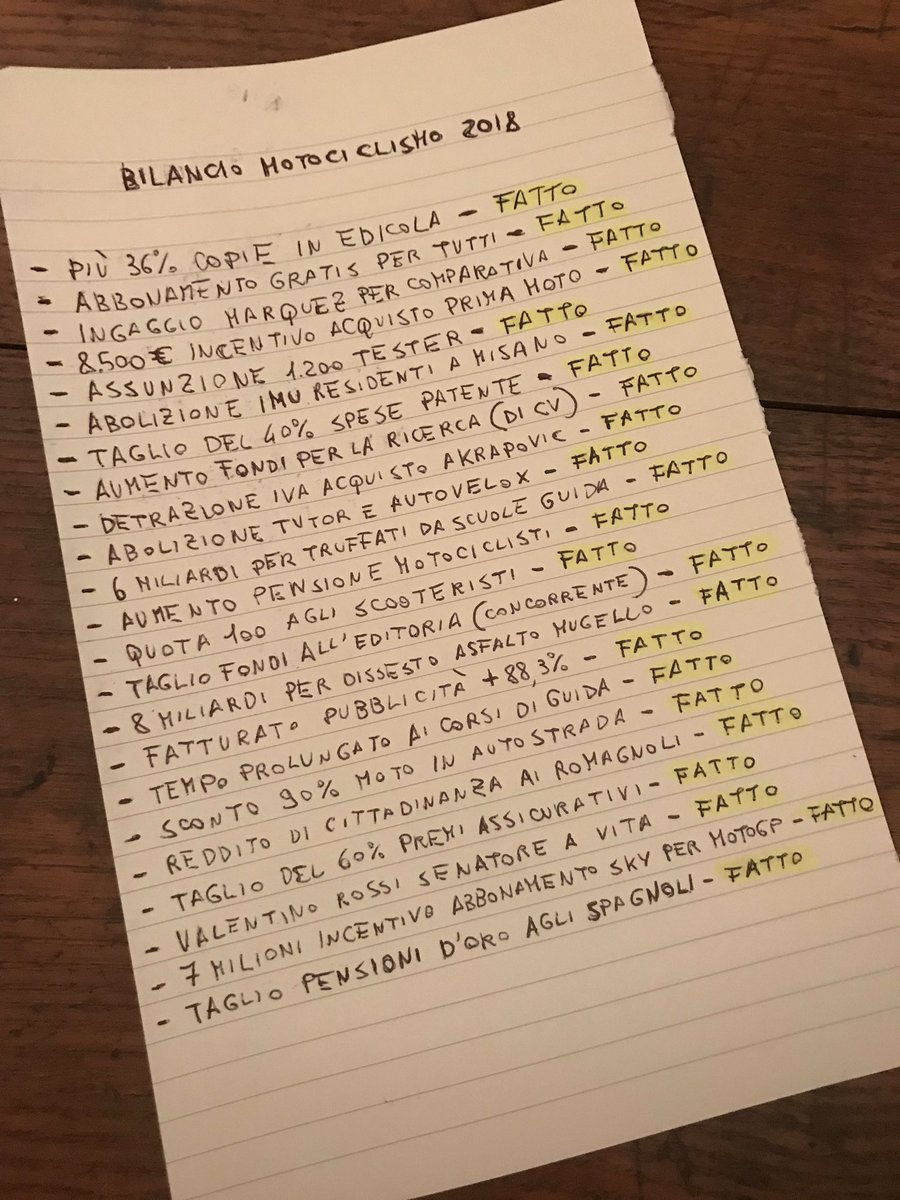 BILANCIO MOTOCICLISMO 2018
- PIÙ 36% COPIE IN EDICOLA - FATTO
- ABBONAMENTO GRATIS PER TUTTI - FATTO
- INGAGGIO MARQUEZ PER COMPARATIVA - FATTO
- 8.500 € INCENTIVO ACQUISTO PRIMA MOTO - FATTO
- ASSUNZIONE 1.200 TESTER - FATTO
- ABOLIZIONE IMU RESIDENTI A MISANO - FATTO
- TAGLIO DEL 40% SPESE PATENTE - FATTO
- AUMENTO FONDI PER LA RICERCA (DI CV) - FATTO
- DETRAZIONE IVA ACQUISTO AKRAPOVIC - FATTO
- ABOLIZIONE TUTOR E AUTOVELOX - FATTO
- 6 MILIARDI PER TRUFFATI DA SCUOLE GUIDA - FATTO
- AUMENTO PENSIONE MOTOCICLISTI - FATTO
- QUOTA 100 AGLI SCOOTERISTI - FATTO
- TAGLIO FONDI ALL'EDITORIA (CONCORRENTE) - FATTO
- 8 MILIARDI PER DISSESTO ASFALTO MUGELLO - FATTO
- FATTURATO PUBBLICITÀ +88,3% - FATTO
- TEMPO PROLUNGATO AI CORSI DI GUIDA - FATTO
- SCONTO 90% MOTO IN AUTOSTRADA - FATTO
- REDDITO DI CITTADINANZA AI ROMAGNOLI - FATTO
- TAGLIO DEL 60% PREMI ASSICURATIVI - FATTO
- VALENTINO ROSSI SENATORE A VITA - FATTO
- 7 MILIONI INCENTIVO ABBONAMENTO SKY PER MOTOGP - FATTO
- TAGLIO PENSIONI D'ORO AGLI SPAGNOLI - FATTO